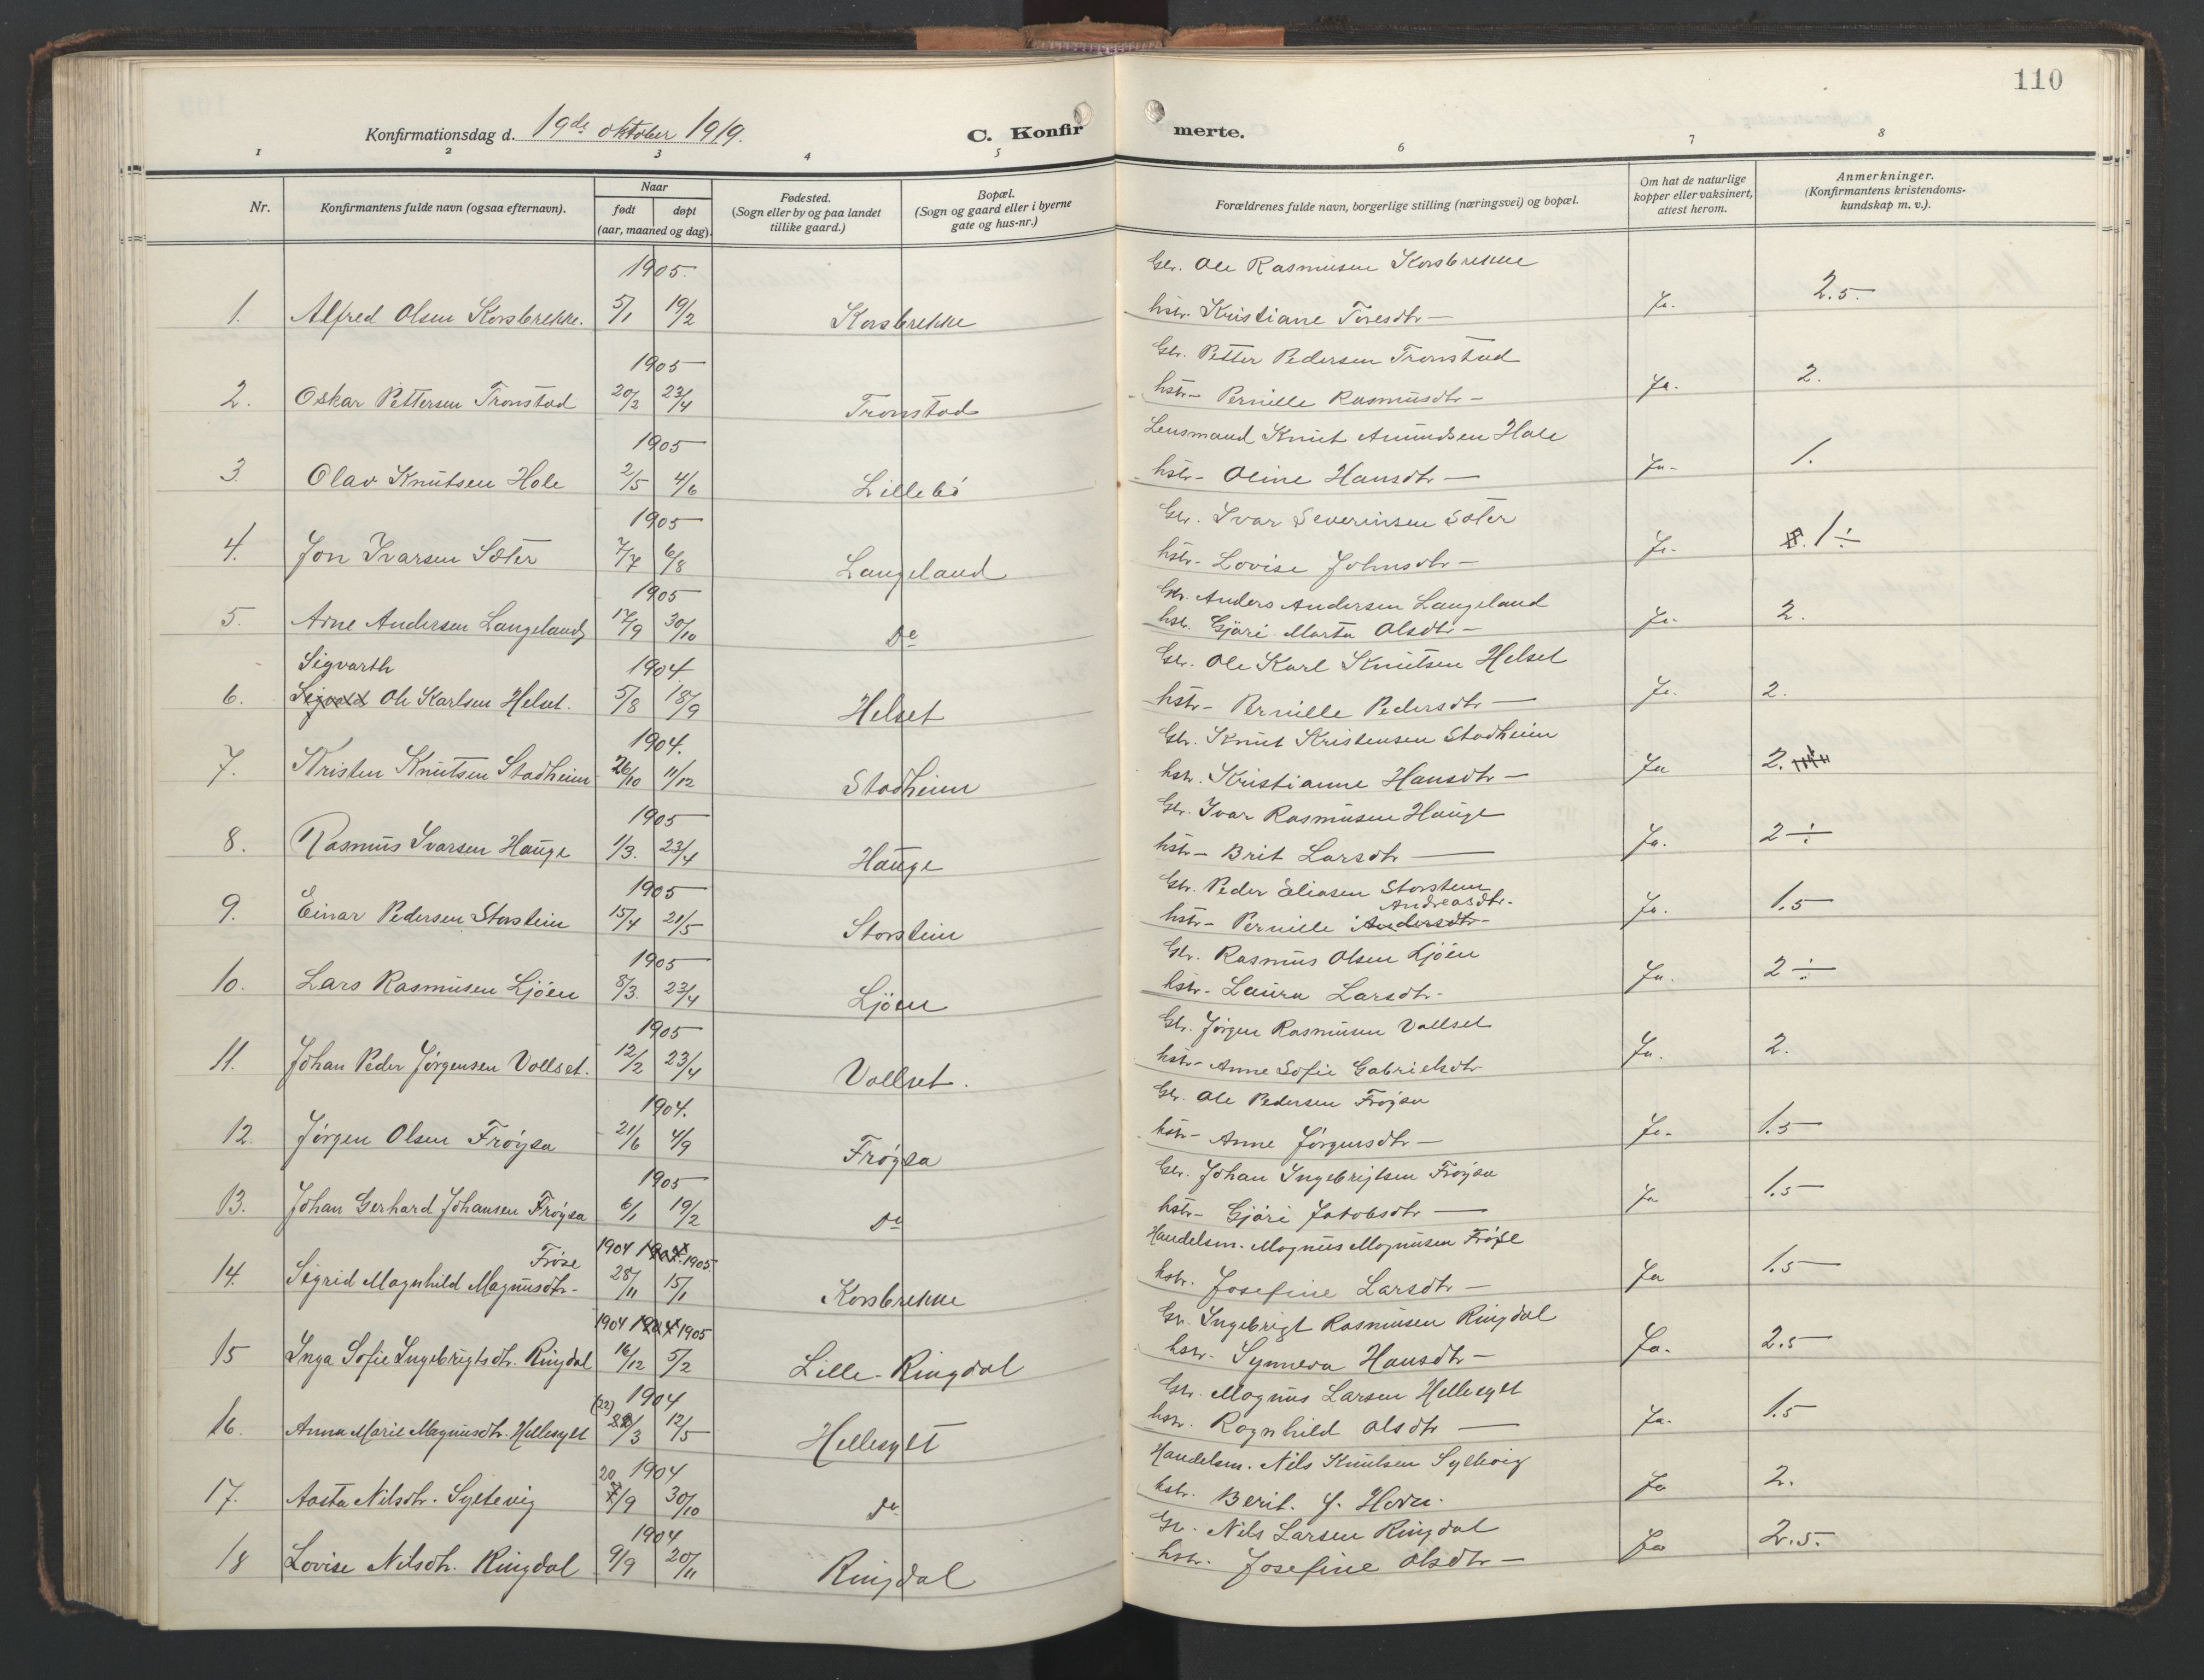 110
Konfirmationsdag d. 19de oktober 1919.
C. Konfirmerte.
1 2 3 4 5 6 7 8
Nr.
Konfirmantens fulde navn (ogsaa efternavn).
Naar
født
døpt
(aar, maaned og dag).
Fødested.
(Sogn eller by og paa landet
tillike gaard.)
Bopæl.
(Sogn og gaard eller i byerne
gate og hus-nr.)
Forældrenes fulde navn, borgerlige stilling (næringsvei) og bopæl.
Om hat de naturlige
kopper eller vaksinert,
attest herom.
Anmerkninger.
(Konfirmantens kristendoms-
kundskap m. v.).
1905. Gbr. Ole Rasmusen Korsbrekke
1. Alfred Olsen Korsbrekke. 5/1 19/2 Korsbrekke hstr. Kristiane Toresdtr — Ja. 2.5.
1905 Gbr. Petter Pedersen Tronstad
2. Oskar Pettersen Tronstad 20/2 23/4 Tronstad hstr- Pernille Rasmusdtr - Ja. 2.
1905 Lensmand Knut Amundsen Hole
3. Olav Knutsen Hole 2/5 4/6 Lillebö hstr- Oline Hansdtr — Ja- 1.
1905 Gbr. Ivar Severinsen Sæter
4. Jon Ivarsen Sæter 7/7 6/8 Langeland hstr. Lovise Johnsdtr - Ja. 1 ÷
1905 Gbr. Anders Andersen Langeland
5. Arne Andersen Langeland 17/9 30/10 Do hstr. Gjöri Marta Olsdtr - Ja. 2.
Sigvarth 1904. Gbr. Ole Karl Knutsen Helset
6. Sigvald Ole Karlsen Helset. 5/8 18/9 Helset hstr- Pernille Pedersdtr — Ja. 2.
1904. Gbr. Knut Kristensen Stadheim
7. Kristen Knutsen Stadheim 26/10 11/12 Stadheim hstr. Kristianne Hansdtr - Ja 2.
1905 Gbr. Ivar Rasmusen Hauge
8. Rasmus Ivarsen Hauge 1/3. 23/4 Hauge hstr- Brit Larsdtr — Ja. 2 ÷
1905 Gbr. Peder Eliasen Storstein
Andreasdtr.
9. Einar Pedersen Storstein 15/4 21/5 Storstein hstr- Pernille Andersdtr- Ja. 1.5
1905 Gbr. Rasmus Olsen Ljöen
10. Lars Rasmusen Ljöen 8/3. 23/4 Ljöen hstr. Laura Larsdtr- Ja. 2 ÷
1905 Gbr. Jörgen Rasmusen Vollset
11. Johan Peder Jörgensen Vollset. 12/2 23/4 Vollset. hstr- Anne Sofie Gabrielsdtr Ja. 2.
1904. Gbr. Ole Pedersen Fröysa
12. Jörgen Olsen Fröysa 21/6 4/9 Fröysa hstr- Anne Jörgensdtr - Ja- 1.5
1905 Gbr. Johan Ingebrigtsen Fröysa
13. Johan Gerhard Johansen Fröysa 6/1 19/2 Do hstr- Gjöri Jakobsdtr — Ja 1.5
Fröse 1904 1904 1905. Handelsm. Magnus Magnusen Fröse
14. Sigrid Magnhild Magnusdtr- 28/11 15/1 Korsbrekke hstr. Josefine Larsdtr - Ja 1.5
1904 1904 1905 Gbr. Ingebrigt Rasmusen Ringdal
15 Inga Sofie Ingebrigtsdtr. Ringdal 16/12 5/2 Lille-Ringdal hstr. Synneva Hansdtr - Ja. 2.5
(22) 1904 Gbr. Magnus Larsen Hellesylt
16. Anna Marie Magnusdtr. Hellesylt 22/3 12/5 Hellesylt hstr. Ragnhild Olsdtr — Ja. 1.5
20 1904 Handelsm. Nils Knutsen Syltevig
17. Aasta Nilsdtr. Syltevig 7/9 30/10 Do hstr. Berit. J. Horn. Ja 2.
1904 Gbr. Nils Larsen Ringdal
18 Lovise Nilsdtr. Ringdal 9/9 20/11 Ringdal hstr. Josefine Olsdtr — Ja 2.5.